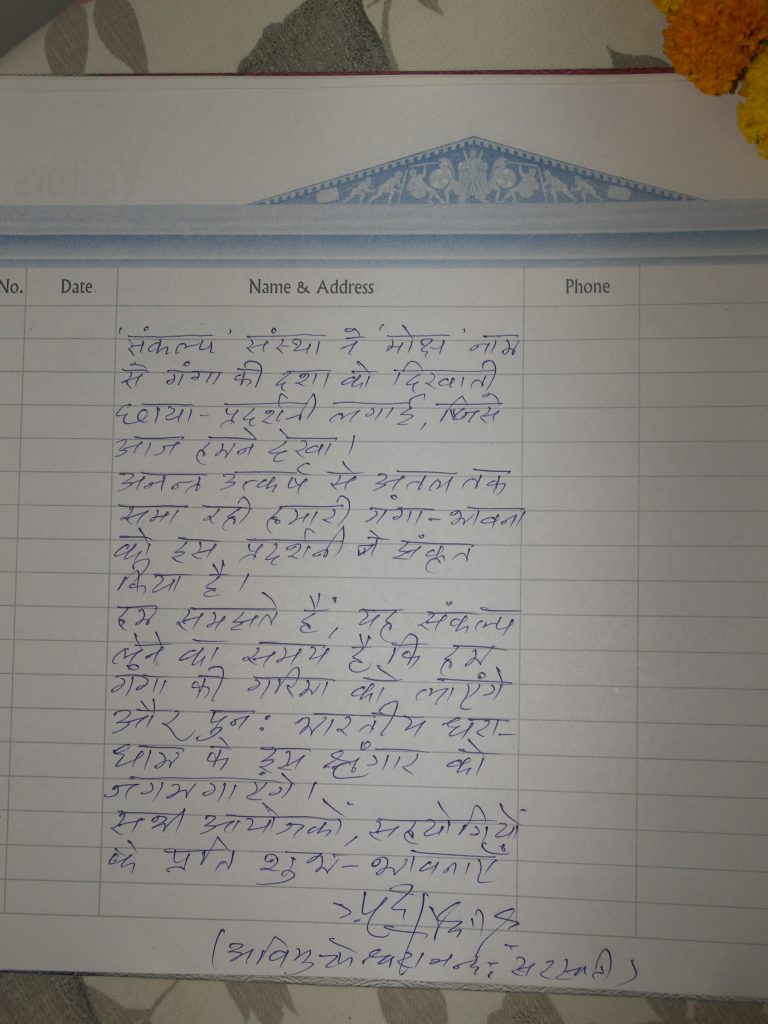 No. Date Name & Address Phone
'संकल्प' संस्था ने 'मोक्ष' नाम
से गंगा की दशा को दिखाती
छाया-प्रदर्शनी लगाई, जिसे
आज हमने देखा।
अनन्त उत्कर्ष से अतल तक
समा रही हमारी गंगा-भावना
को इस प्रदर्शनी ने झंकृत
किया है।
हम समझते हैं, यह संकल्प
लेने का समय है कि हम
गंगा की गरिमा को लाएंगे
और पुनः भारतीय धरा-
धाम के इस श्रृंगार को
जगमगाएंगे।
सभी आयोजकों, सहयोगियों
के प्रति शुभ-भावनाएं
(अविमुक्तेश्वरानन्दः सरस्वती)